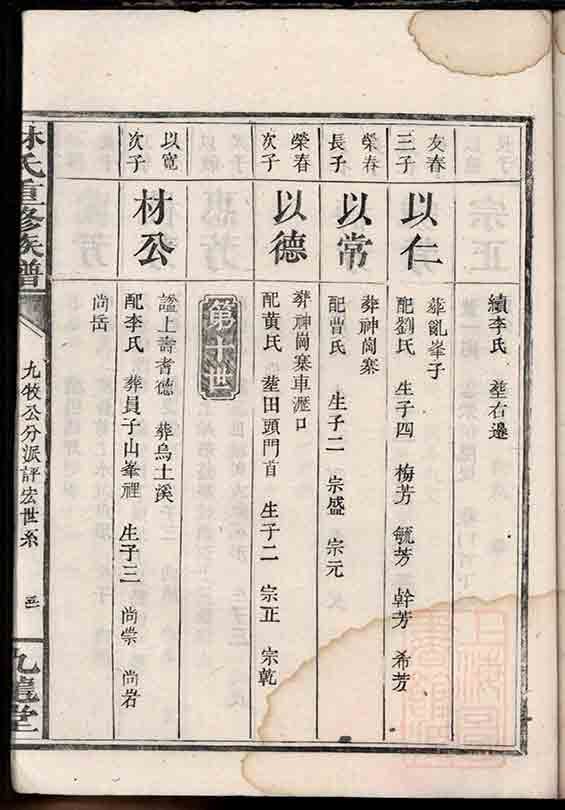 續李氏 塟右邊
友春
三子
以仁
葬亂峯子
配劉氏 生子四 梅芳 毓芳 幹芳 希芳
榮春
長子
以常
葬神崗寨
配曹氏 生子二 宗盛 宗元
榮春
次子
以德
葬神崗寨車瀝口
配黄氏 塟田頭門首 生子二 宗正 宗乾
第十世
以寬
次子
材公
謚上壽者德 葬烏土溪
配李氏 葬員子山峯裡 生子三 尚崇 尚岩
尚岳
林氏重修族譜
九牧公分派評宏世系
九龍堂
上海圖
書館藏